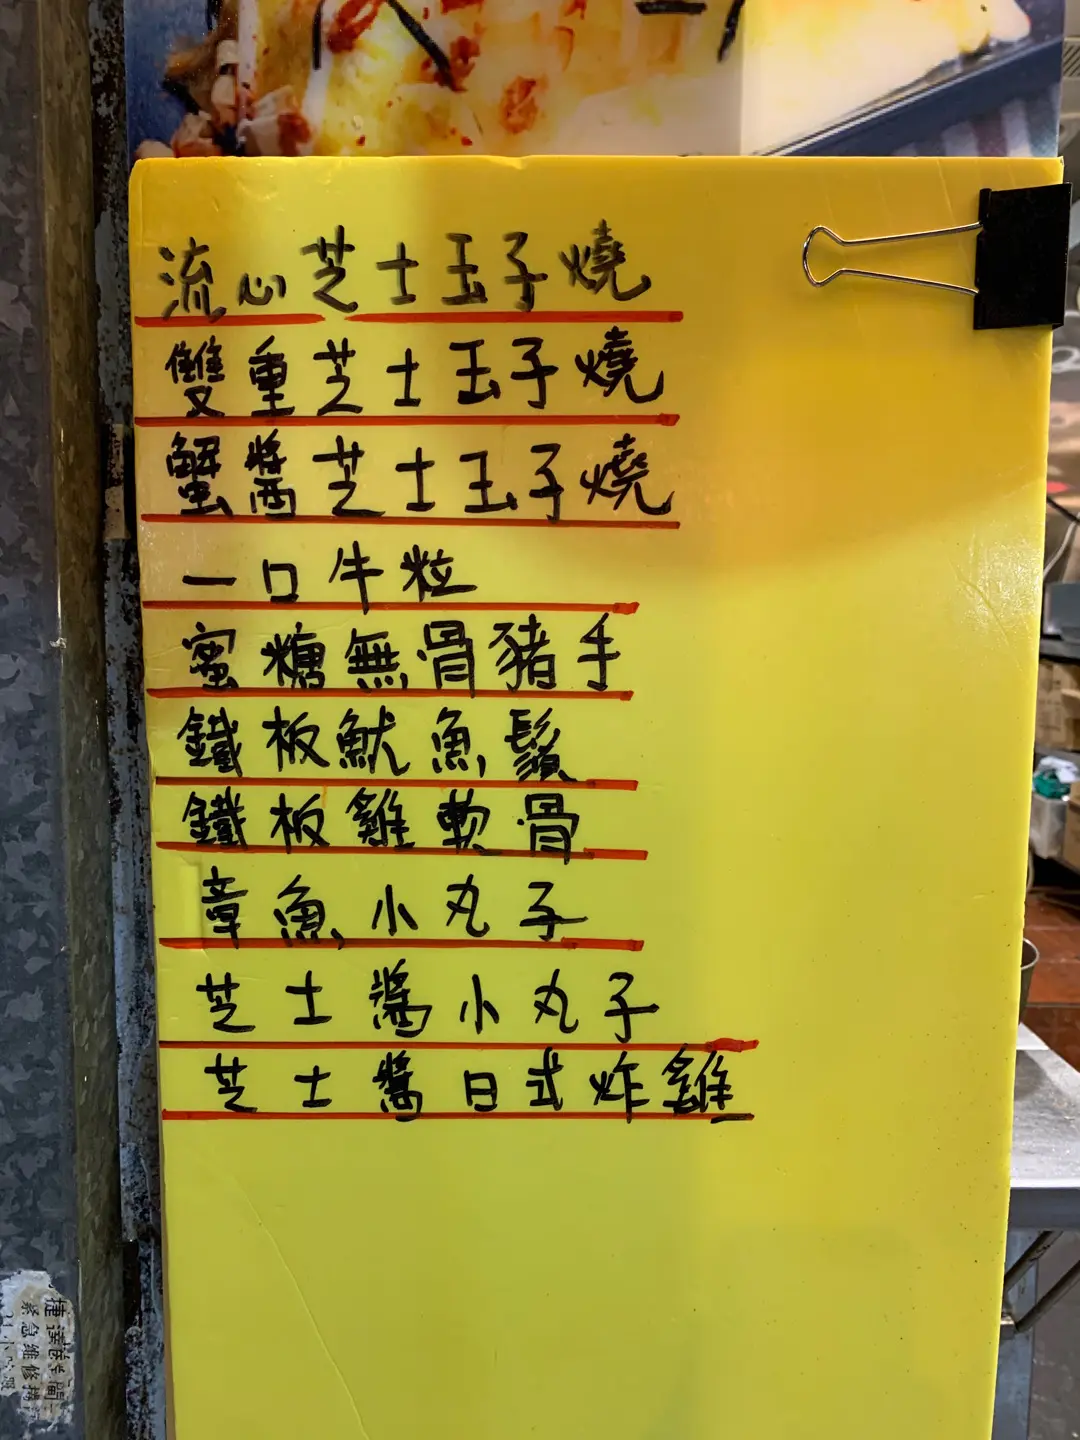 流心芝士玉子燒
雙重芝士玉子燒
蟹醬芝士玉子燒
一口牛粒
蜜糖無骨豬手
鐵板魷魚鬚
鐵板雞軟骨
章魚小丸子
芝士醬小丸子
芝士醬日式炸雞
捷
緊急維修